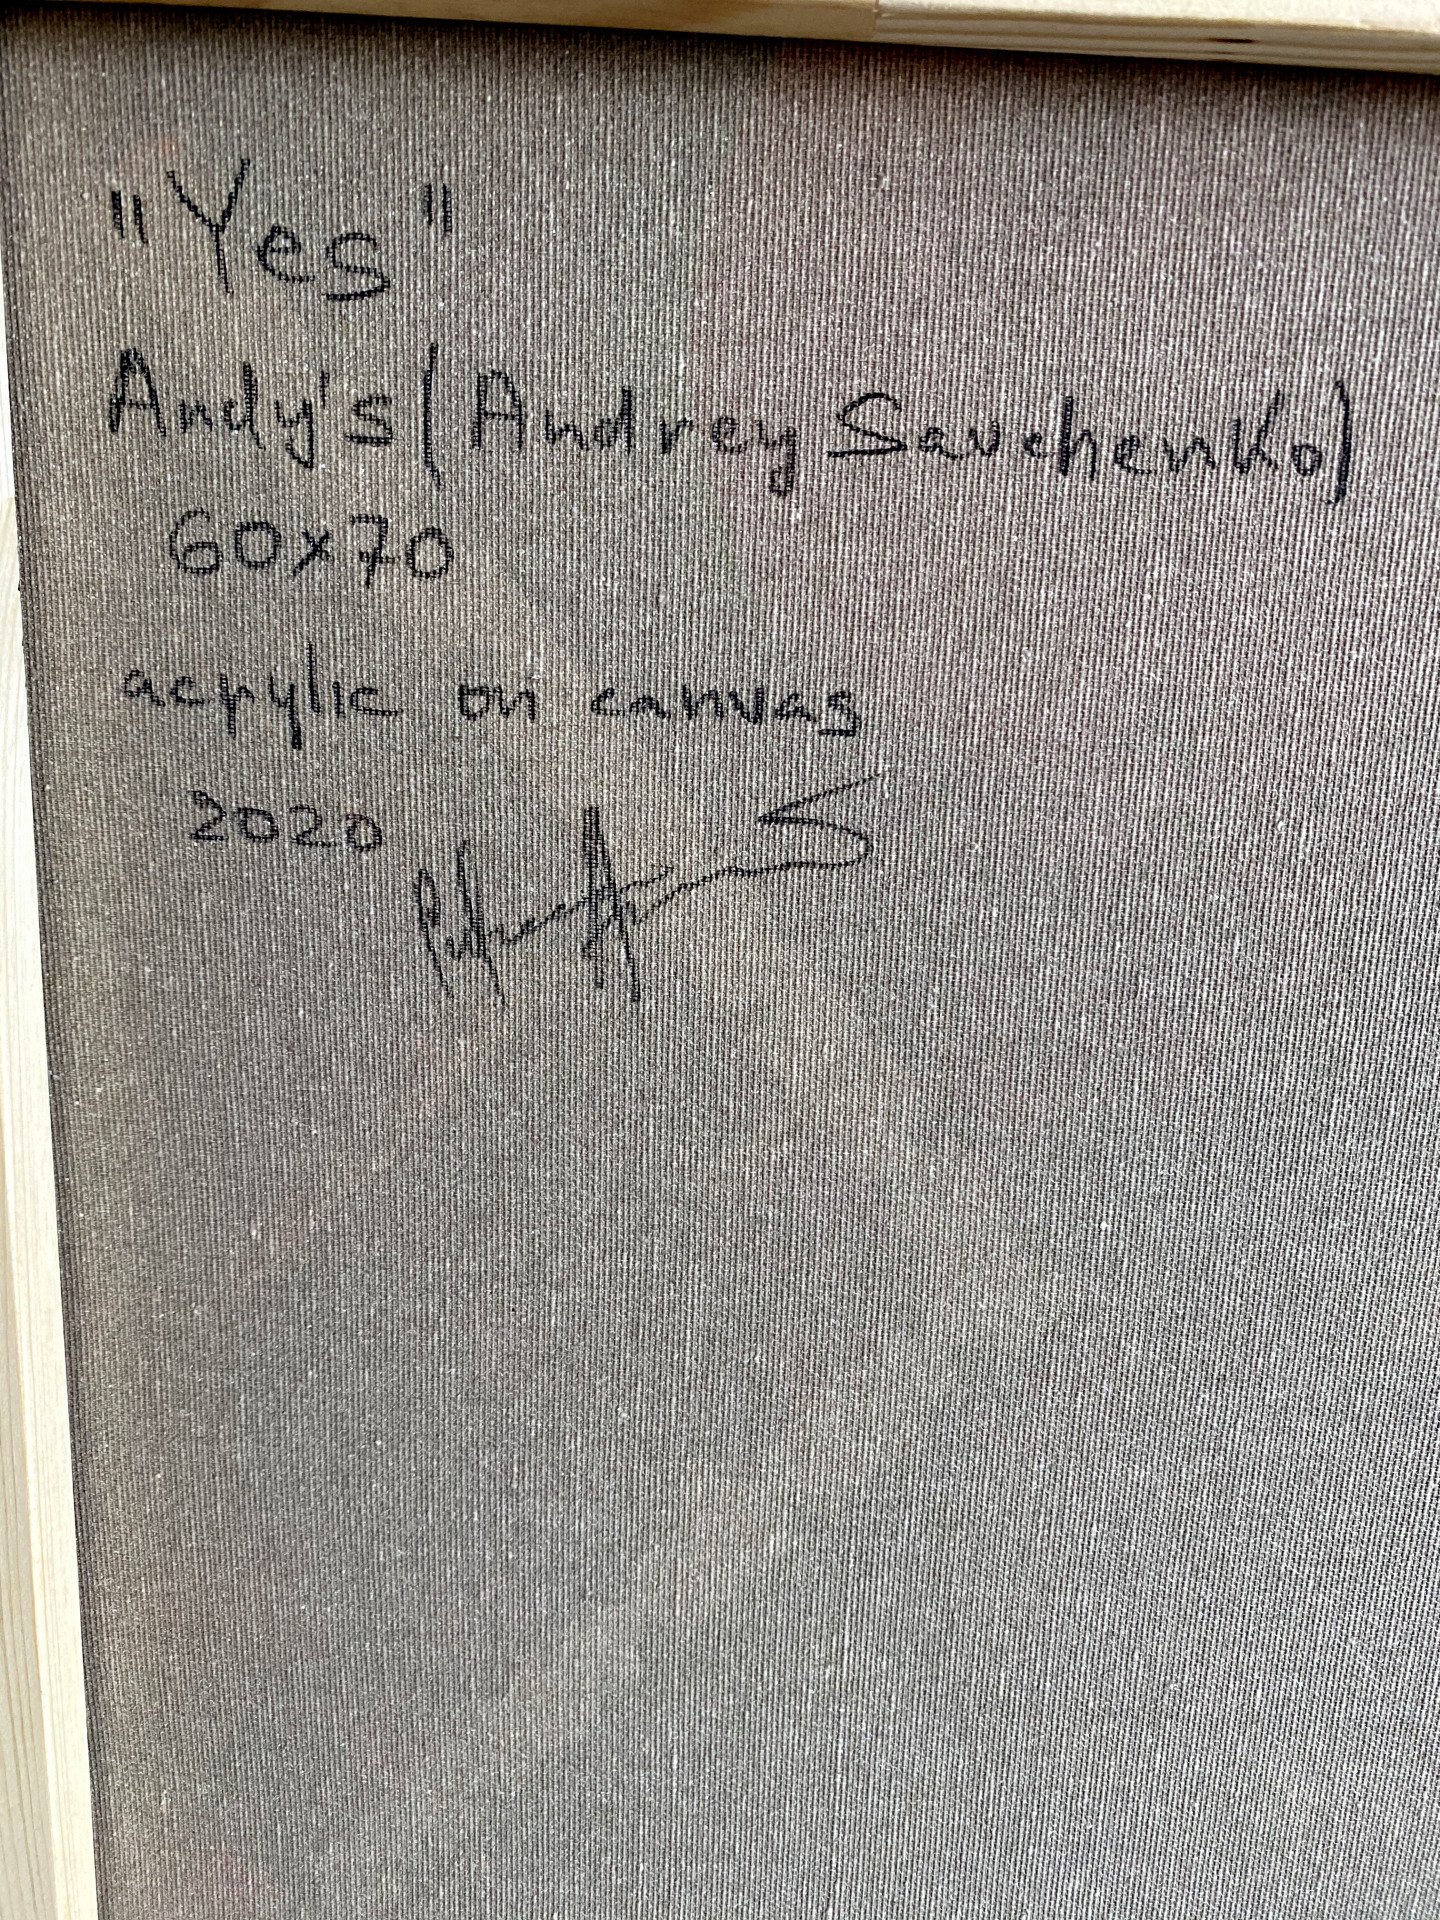 "Yes"
Andy's (Andrey Savchenko)
60x70
acrylic on canvas
2020